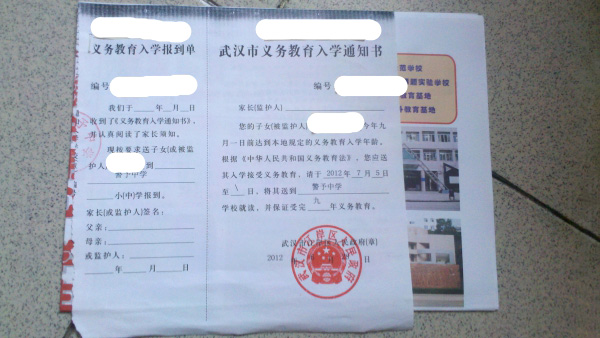 义务教育入学报到单
编号
我们于 年 月 日
收到了《义务教育入学通知书》,
并认真阅读了家长须知。
现按要求送子女(或被监
护人 到
警予中学
小(中)学报到。
家长(或监护人)签名:
父亲:
母亲:
或监护人:
年 月 日
武汉市义务教育入学通知书
编号
家长(监护人)
您的子女(被监护人) 今年九
月一日前达到本地规定的义务教育入学年龄。
根据《中华人民共和国义务教育法》,您应送
其入学接受义务教育,请于 2012年 7 月 5 日
至 \ 日,将其送到 警予中学
学校就读,并保证受完 九 年义务教育。
武汉市江岸区人民政府(章)
2012 日
武汉市江岸区人民政府
范学校
实验学校
育基地
教育基地